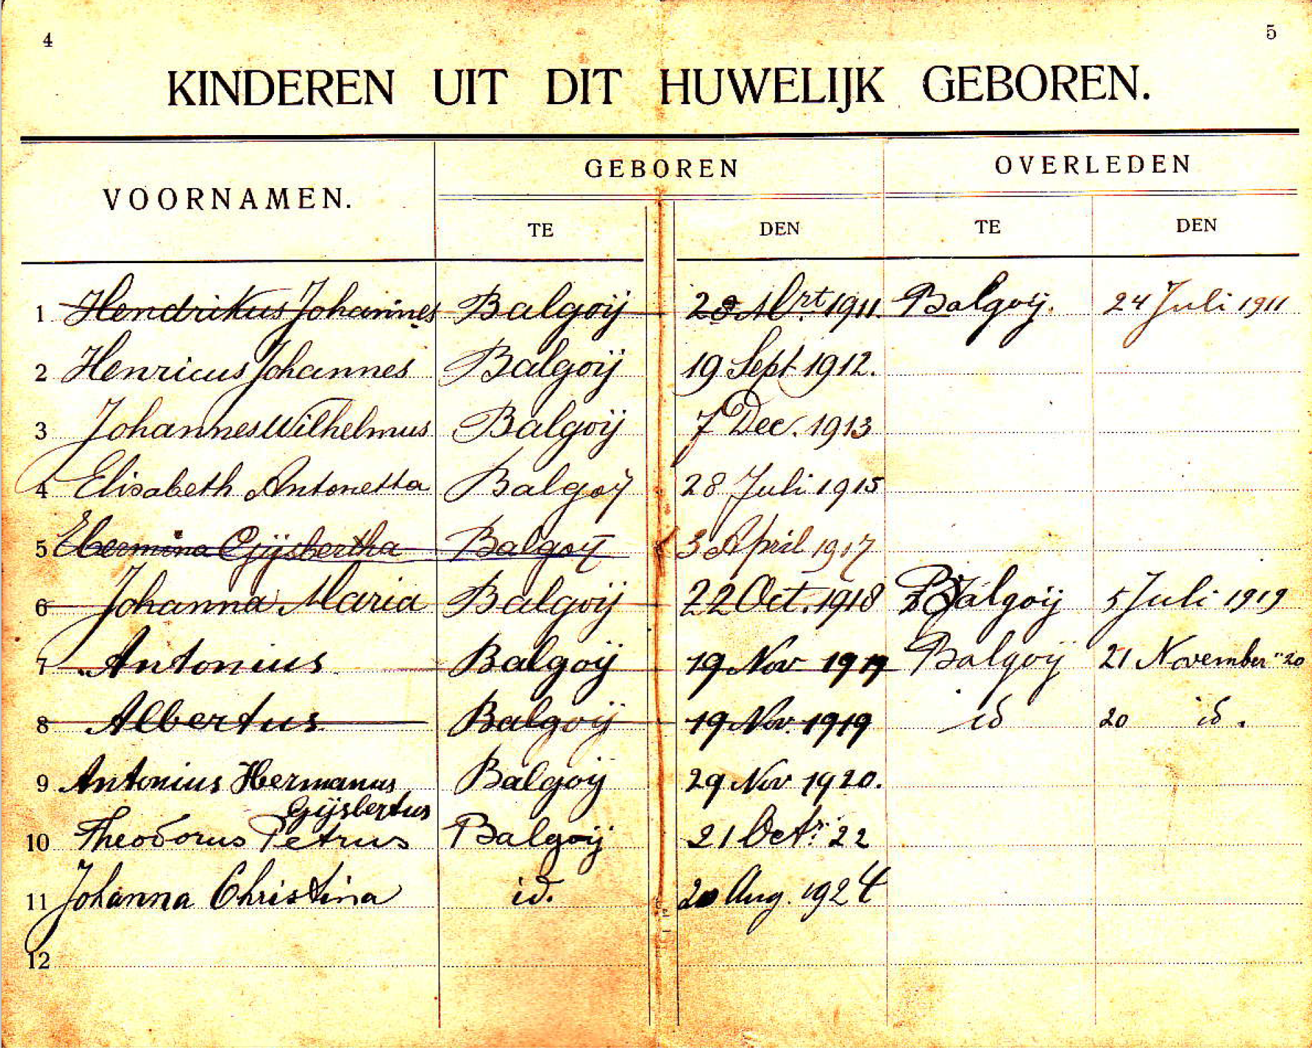 4
5
KINDEREN UIT DIT HUWELIJK GEBOREN.
VOORNAMEN.
GEBOREN
OVERLEDEN
TE
DEN
TE
DEN
1 Hendrikus Johannes Balgoij 28 Mrt 1911 Balgoij. 24 Juli 1911
2 Henricus Johannes Balgoij 19 Sept 1912.
3 Johannes Wilhelmus Balgoij 7 Dec. 1913
4 Elisabeth Antonetta Balgoij 28 Juli 1915
5 Hermina Gijsbertha Balgoij 3 April 1917
6 Johanna Maria Balgoij 22 Oct. 1918 Balgoij 5 Juli 1919
7 Antonius Balgoij 19 Nov 1919 Balgoij 21 November "20
8 Albertus Balgoij 19 Nov. 1919 id 20 id.
9 Antonius Hermanus Balgoij 29 Nov 1920.
Gijsbertus
10 Theodorus Petrus Balgoij 21 Octr. 22
11 Johanna Christina id. 20 Aug. 1924
12